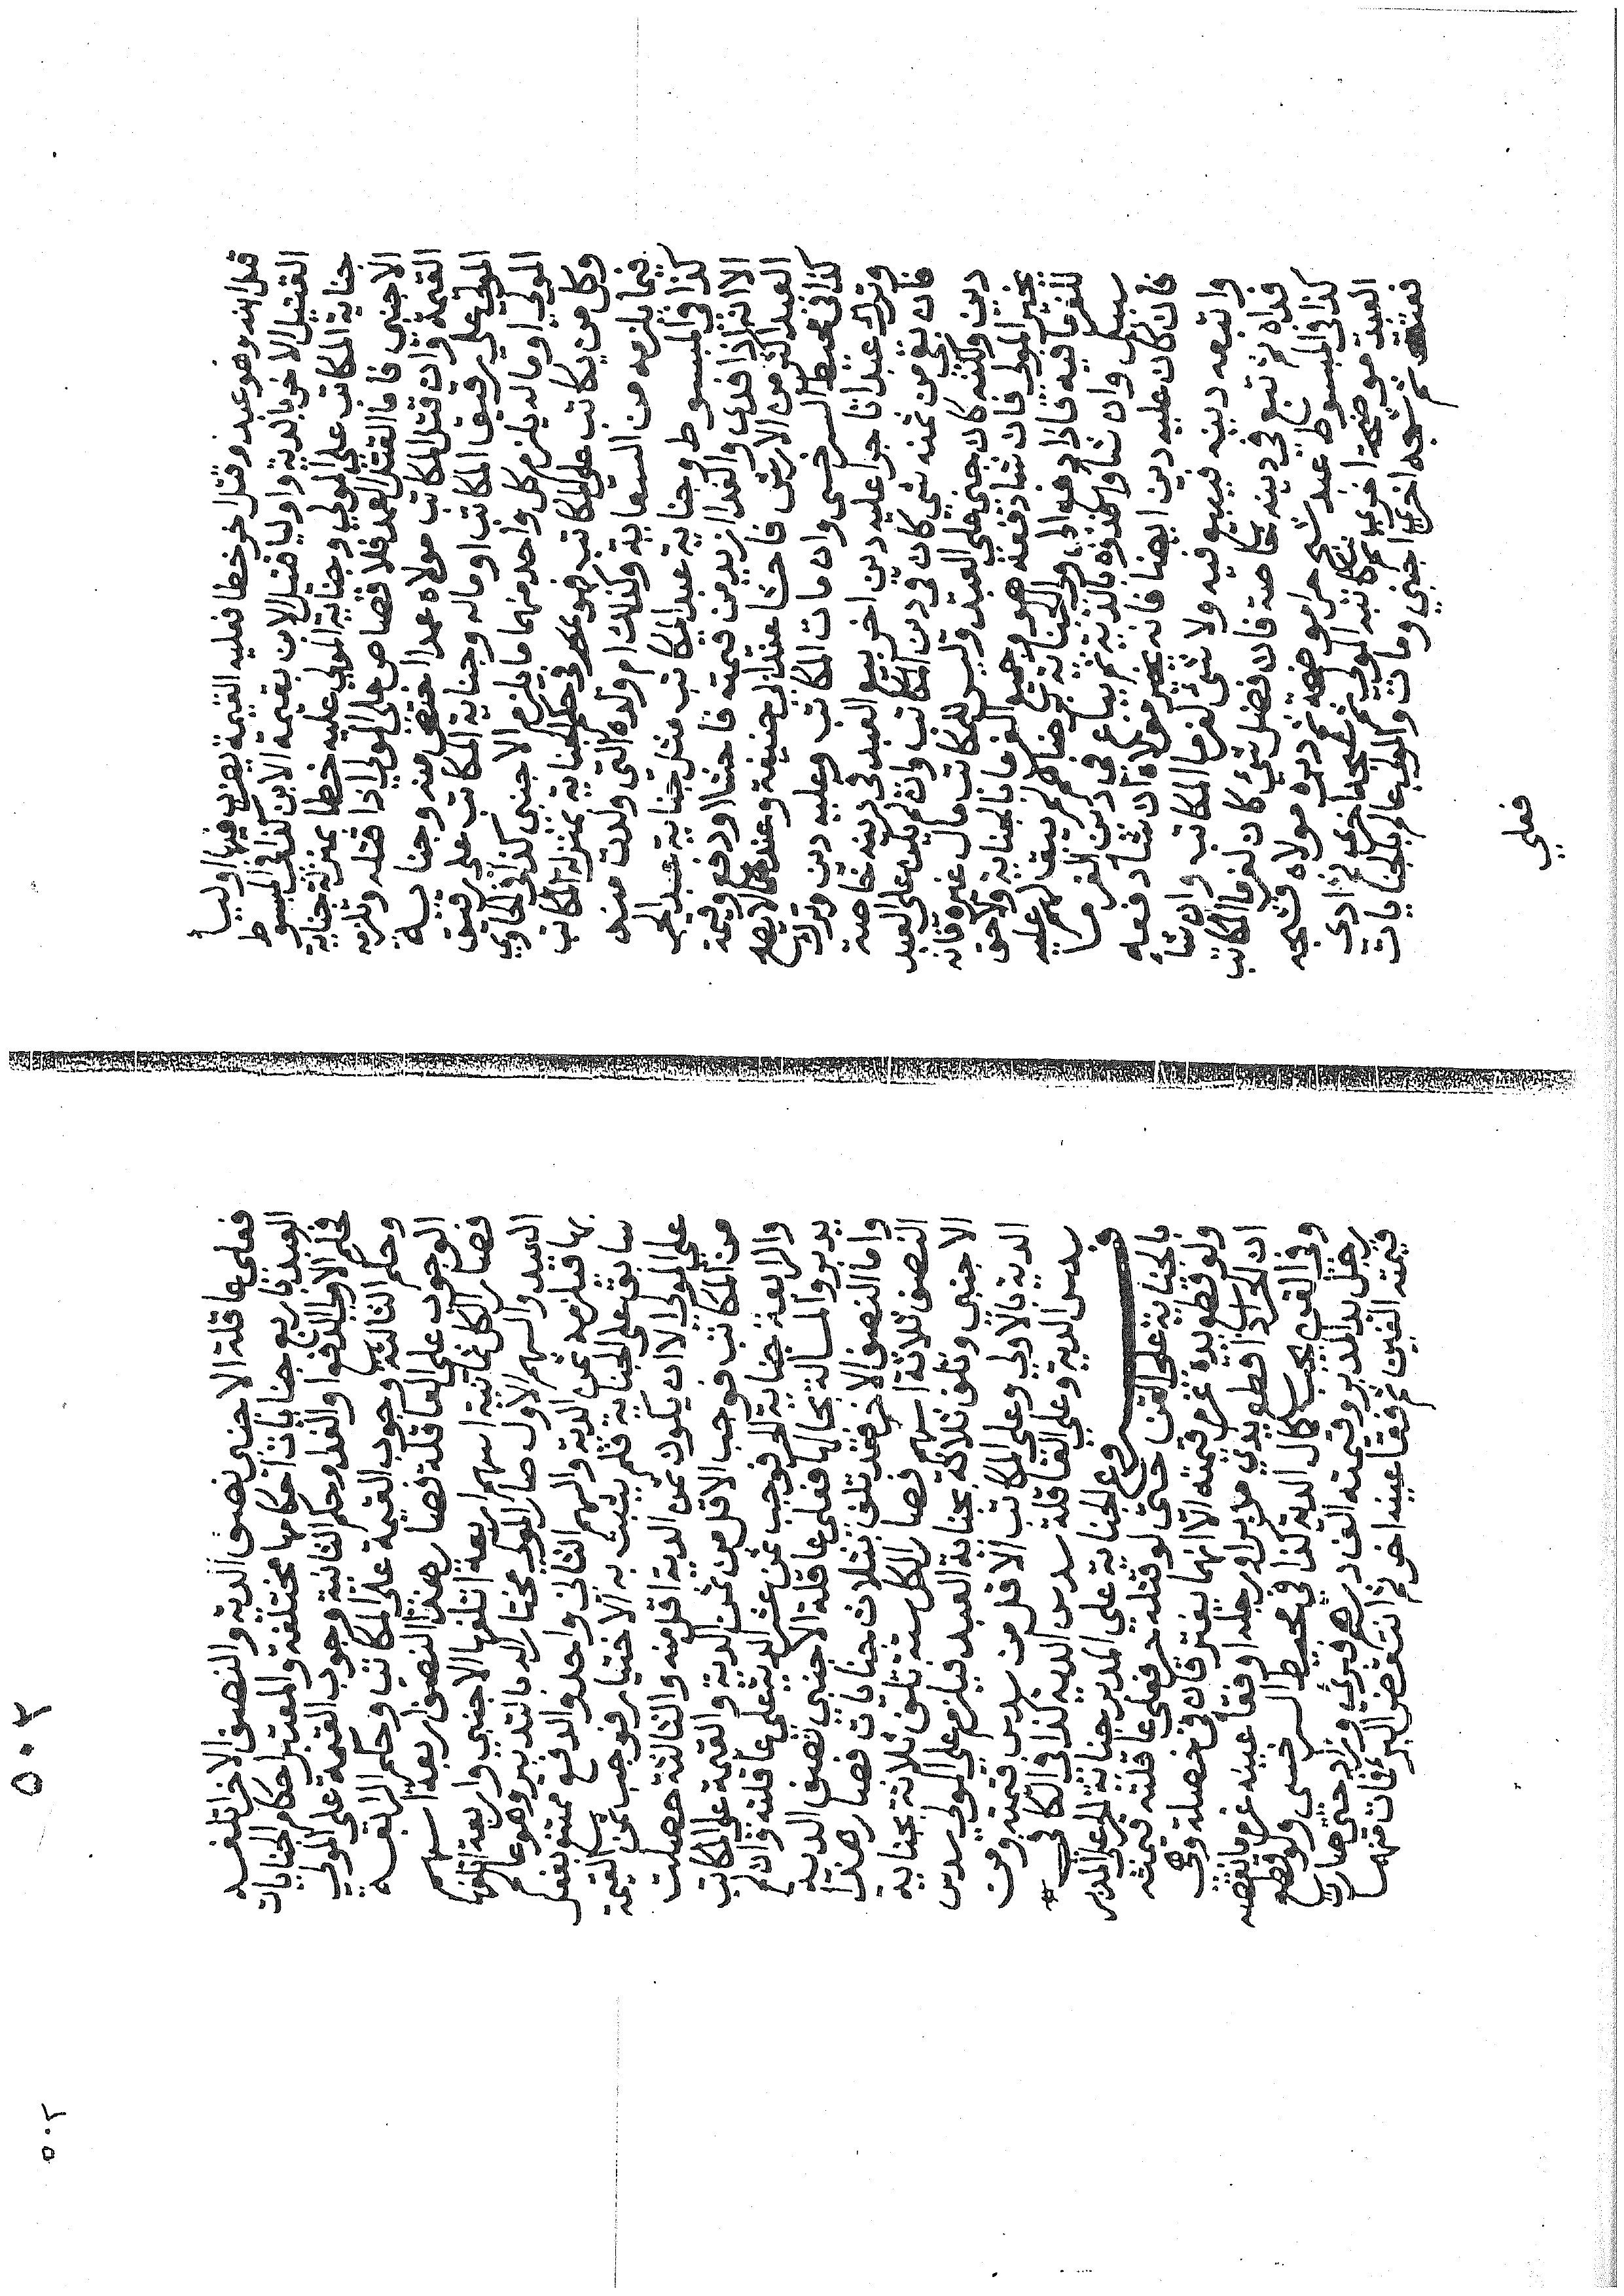 قتل ابنه وهو عبد وقتل اخر خطا فعليه القيمة يضرب فيها اوليا
القتيل الاخر بالدية واوليا قتيل الابن بقيمة الابن كذا في المبسوط
جناية المكاتب علي المولي وجناية المولي عليه خطا بمنزلة جناية
الاجنبي فاما القتل العمد فلا قصاص علي المولي اذا قتله وتلزمه
القيمة وان قتل المكاتب مولاه عمدا اقتص منه وجناية
المولي علي رقيق المكاتب او ماله وجناية المكاتب علي رقيق
المولي او ماله يلزم كل واحد منهما ما يلزم الاجنبي كذا في الحاوي
وكل من يكاتب علي المكاتب فهو في حكم الجناية بمنزلة المكاتب
فيما يلزمه من السعاية وكذلك ام ولده التي ولدت منه
كذا في المبسوط وجناية عبد المكاتب مثل جناية عبد الحر
الا انه اذا فدي والفدا ازيد من قيمته فاحشا او دفع وقيمة
العبد اكثر من الارش فاحشا عند ابي حنيفة وعندهما لا يصح
كذا في محيط السرخسي وان مات المكاتب وعليه دين وترك
وترك عبدا تاجرا عليه دين اخر بيع العبد في دينه خاصة
فان بقي من ثمنه شي كان في دين المكاتب وان لم يكن علي العبد
دين ولكنه كان جني علي العبد وليس للمكاتب مال غيره فانه
يخير المولي فان شا دفعه هو وجميع الغرما بالجناية ولا حق
للغرما فيه فاذا دفع الي ولي الجناية برضاهم لم يبق لهم عليه
سبيل وان شاوا فدوه بالدية ثم يباع في دين الغرما
فان كان عليه دين ايضا فانه يخير مولاه ان شا دفعه
واتبعه دينه فيبيع فيه ولا شي لغرما المكاتب وان شا
فداه ثم تبع في دينه خاصة فان فضل شي كان لغرما المكاتب
كذا في المبسوط عبد شج حرا موضحة ثم دبره مولاه فشجه
العبد موضحة اخري ثم كاتبه المولي ثم شجه اخري ثم ادي
فعتق ثم شجه اخري اجنبي ومات والمولي عالم بالجنايات
فعلي
٥٠٢
فعلي عاقلة الاجنبي نصف الدية والنصف الاخر اتلفه
العبد باربع جنايات احكامها مختلفة والمعتبر احكام الجنايات
فحكم الاولي الدفع او الفدا وحكم الثانية وجوب القيمة علي المولي
وحكم الثالثة وجوب القيمة علي المكاتب وحكم الرابعة
الوجوب علي العاقلة فصار هذا النصف اربعة اسهم
فصار الكل ثمانية اسهم اربعة اتلفها الاجنبي واربعة اتلفها
العبد والسهم الاول صار المولي مختارا له بالتدبير وهو عالم
بها فيلزمه ثمن الدية والسهم الثاني واحد والدفع ممتنع بفعل
سابق علي الجناية فلم يثبت به الاختيار فوجب ثمن القيمة
علي المولي الا ان يكون ثمن الدية اقل منه والثالثة حصلت
من المكاتب فوجب الاقل من ثمن الدية والقيمة علي المكاتب
والرابعة جناية الحر فوجب ثمن عشر الدية علي عاقلته وان لم
يدبر والمسالة بحالها فعلي عاقلة الاجنبي نصف الدية
واما النصف الاخر فقد تلف بثلاث جنايات فصار هذا
النصف ثلاثة اسهم فصار الكل ستة تلف ثلاثة بجناية
الاجنبي وتلف ثلاثة بجناية العبد فيلزم علي المولي سدس
الدية بالاولي وعلي المكاتب الاقل من سدس قيمته ومن
سدس الدية وعلي العاقلة سدس الدية كذا في الكافي
فروع الجناية علي المدبر جناية الحر علي المدبر
بالجناية علي القن حتي لو قتله حر فعلي عاقلته قيمته
ولو قطع يده غرم قيمته الا انهما يفترقان في خصلة وهي
ان الحر اذا قطع يدي مدبر او رجله او فقا عينيه غرم ما نقصه
وفي القن يجب كمال الدية كذا في محيط السرخسي ولو قطع
رجل يد المدبر وقيمته الف درهم فبري وزاد حتي صارت
قيمته الفين ثم فقا عينه اخر ثم انتقض البر فمات منهما
٥٠٢